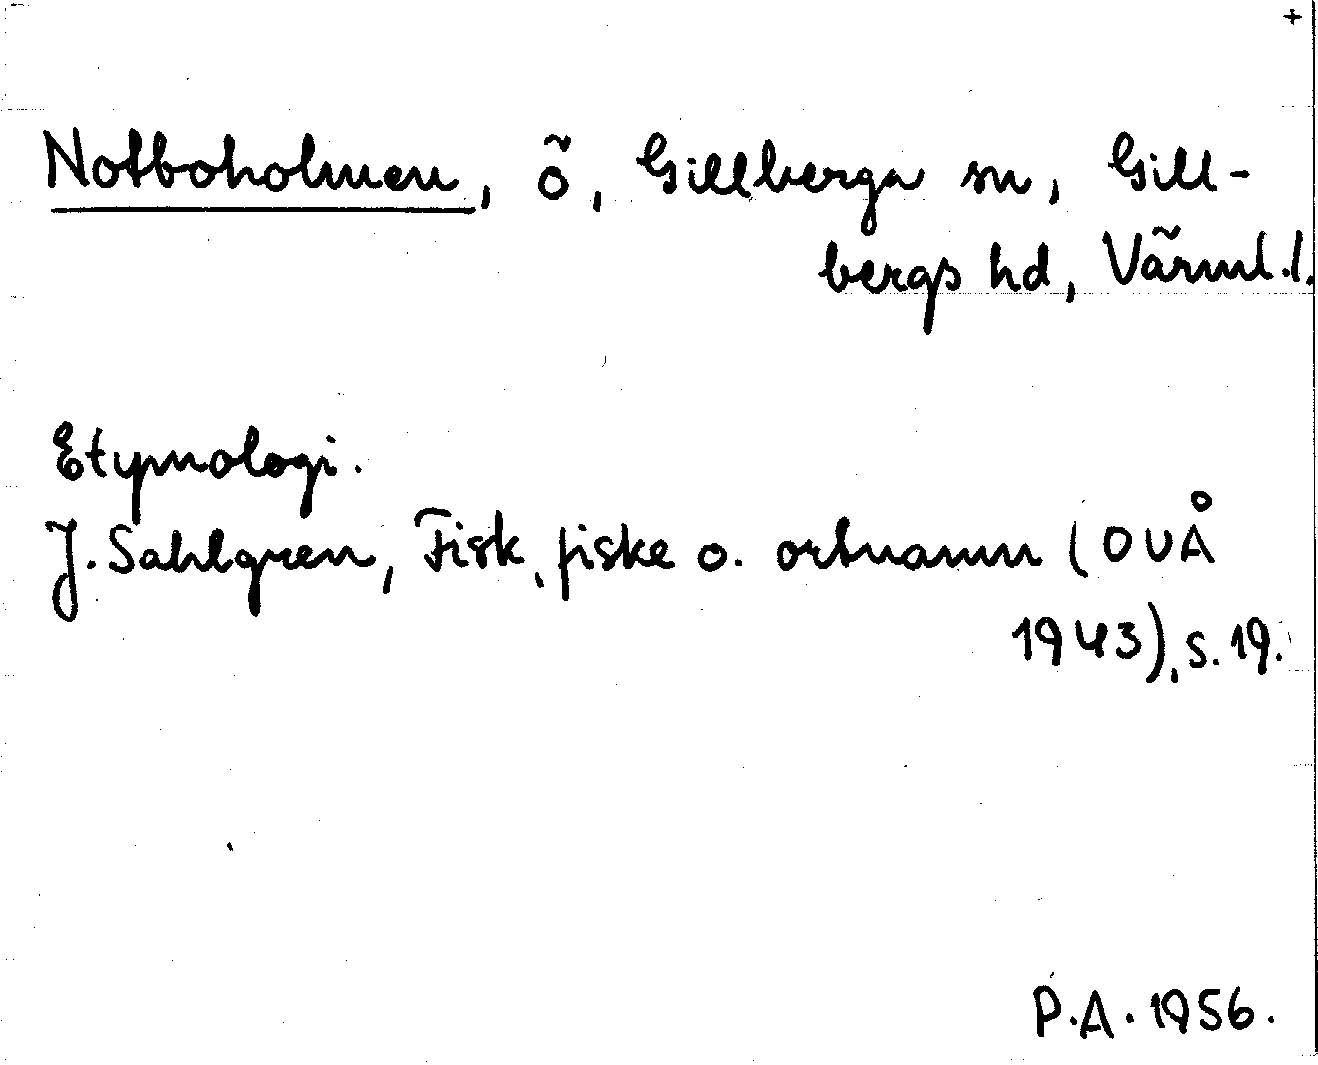 +
Notboholmen, ö, Gillberga sn, Gill-
bergs hd, Värml.l.
Etymologi.
J. Sahlgren, Fisk, fiske o. ortnamn (OUÅ
1943), s. 19.
P.A. 1956.